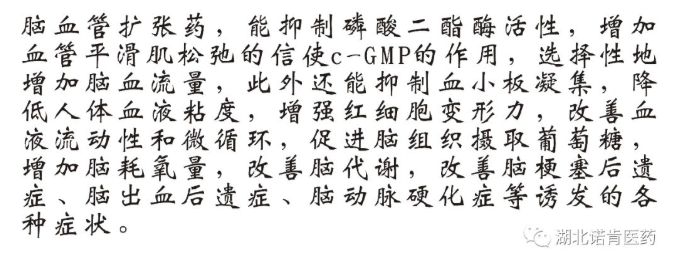 脑血管扩张药，能抑制磷酸二酯酶活性，增加
血管平滑肌松弛的信使c-GMP的作用，选择性地
增加脑血流量，此外还能抑制血小板凝集，降
低人体血液粘度，增强红细胞变形力，改善血
液流动性和微循环，促进脑组织摄取葡萄糖，
增加脑耗氧量，改善脑代谢，改善脑梗塞后遗
症、脑出血后遗症、脑动脉硬化症等诱发的各
种症状。
湖北诺肯医药